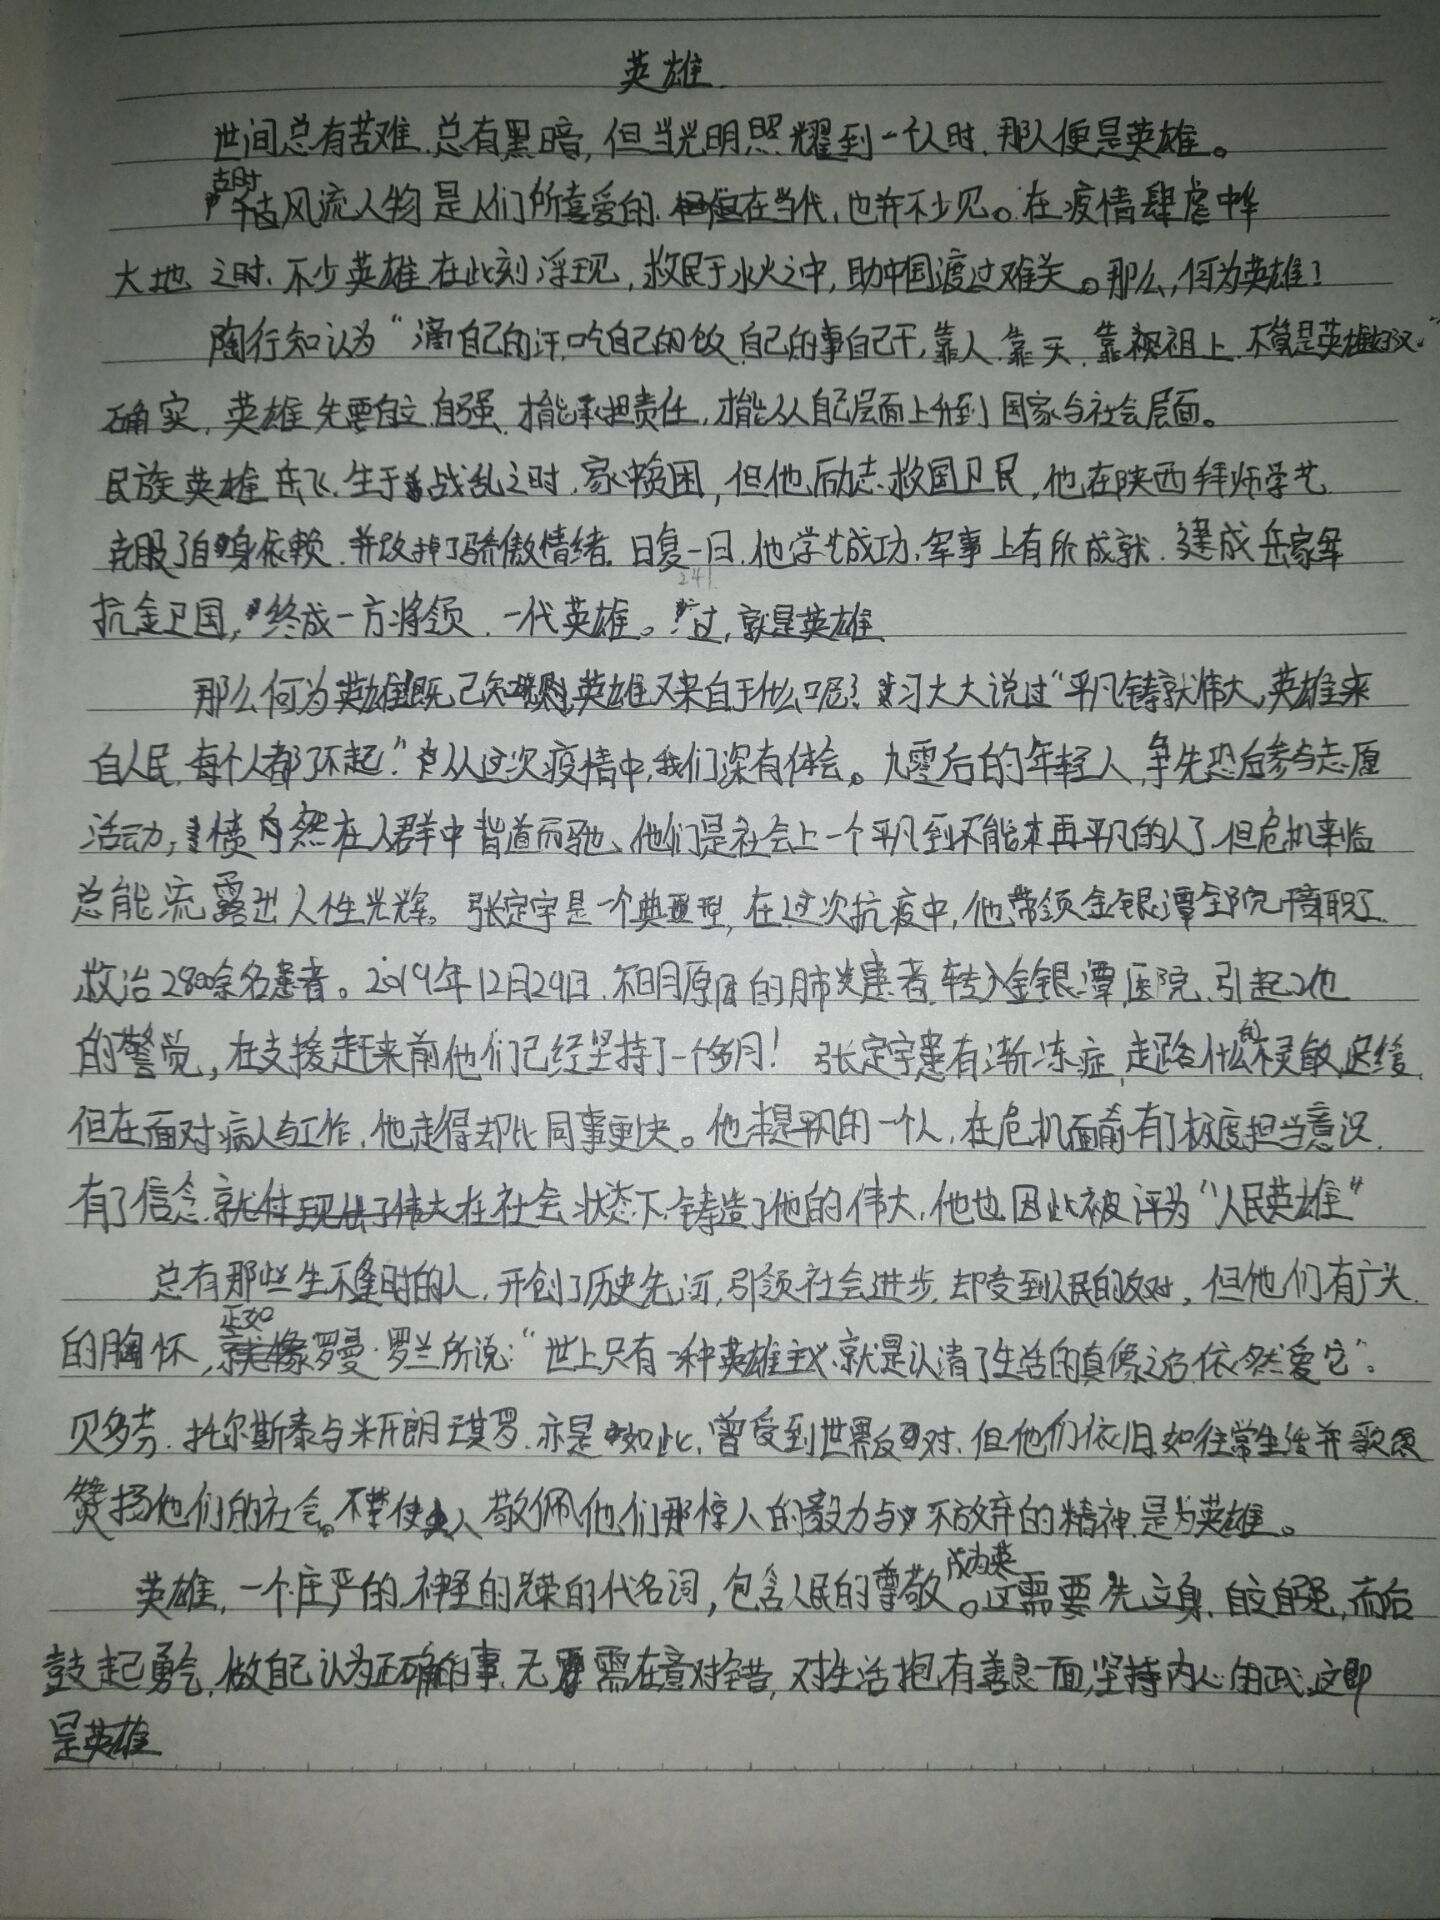 英雄
世间总有苦难,总有黑暗,但当光明照耀到一个人时,那人便是英雄。
古时
风流人物是人们所喜爱的,在当代,也并不少见。在疫情肆虐中华
大地之时,不少英雄在此刻浮现,救民于水火之中,助中国渡过难关。那么,何为英雄?
陶行知认为“滴自己的汗,吃自己的饭,自己的事自己干,靠人,靠天,靠祖上,不算是英雄好汉。”
确实,英雄先要自立自强,才能承担责任,才能从自己层面上升到国家与社会层面。
民族英雄岳飞,生于战乱之时,家贫困,但他励志救国卫民,他在陕西拜师学艺
克服了自身依赖,并改掉了骄傲情绪,日复一日,他学艺成功,军事上有所成就,建成岳家军
抗金卫国,终成一方将领,一代英雄。过,就是英雄
那么何为英雄既已知,英雄又来自于什么呢?习大大说过“平凡铸就伟大,英雄来
自人民,每个人都了不起。”从这次疫情中,我们深有体会。九零后的年轻人,争先恐后参与志愿
活动,愤然在人群中背道而驰、他们是社会上一个平凡到不能再平凡的人了,但危机来临
总能流露出人性光辉。张定宇是一个典型,在这次抗疫中,他带领金银潭全院职工
救治2800余名患者。2019年12月29日,不明原因的肺炎患者转入金银潭医院,引起了他
的警觉,在支援赶来前他们已经坚持了一个多月!张定宇患有渐冻症,走路什么的不灵敏,迟缓,
但在面对病人与工作,他走得却比同事更快。他本是平凡的一个人,在危机面前有了极度担当意识,
有了信念,在社会状态下铸造了他的伟大,他也因此被评为“人民英雄”
总有那些生不逢时的人,开创了历史先河,引领社会进步,却受到人民的反对,但他们有广大
的胸怀,正如罗曼·罗兰所说:“世上只有一种英雄主义,就是认清了生活的真像之后依然爱它”。
贝多芬,托尔斯泰与米开朗琪罗,亦是如此,曾受到世界反对,但他们依旧如往常生活并歌颂
赞扬他们的社会。不禁使人敬佩他们那惊人的毅力与不放弃的精神,是为英雄。
英雄,一个庄严的,神圣的光荣的代名词,包含人民的尊敬。成为英这需要先立身,自立自强,而后
鼓起勇气,做自己认为正确的事,无需在意对错,对生活抱有善良一面,坚持内心,这即
是英雄